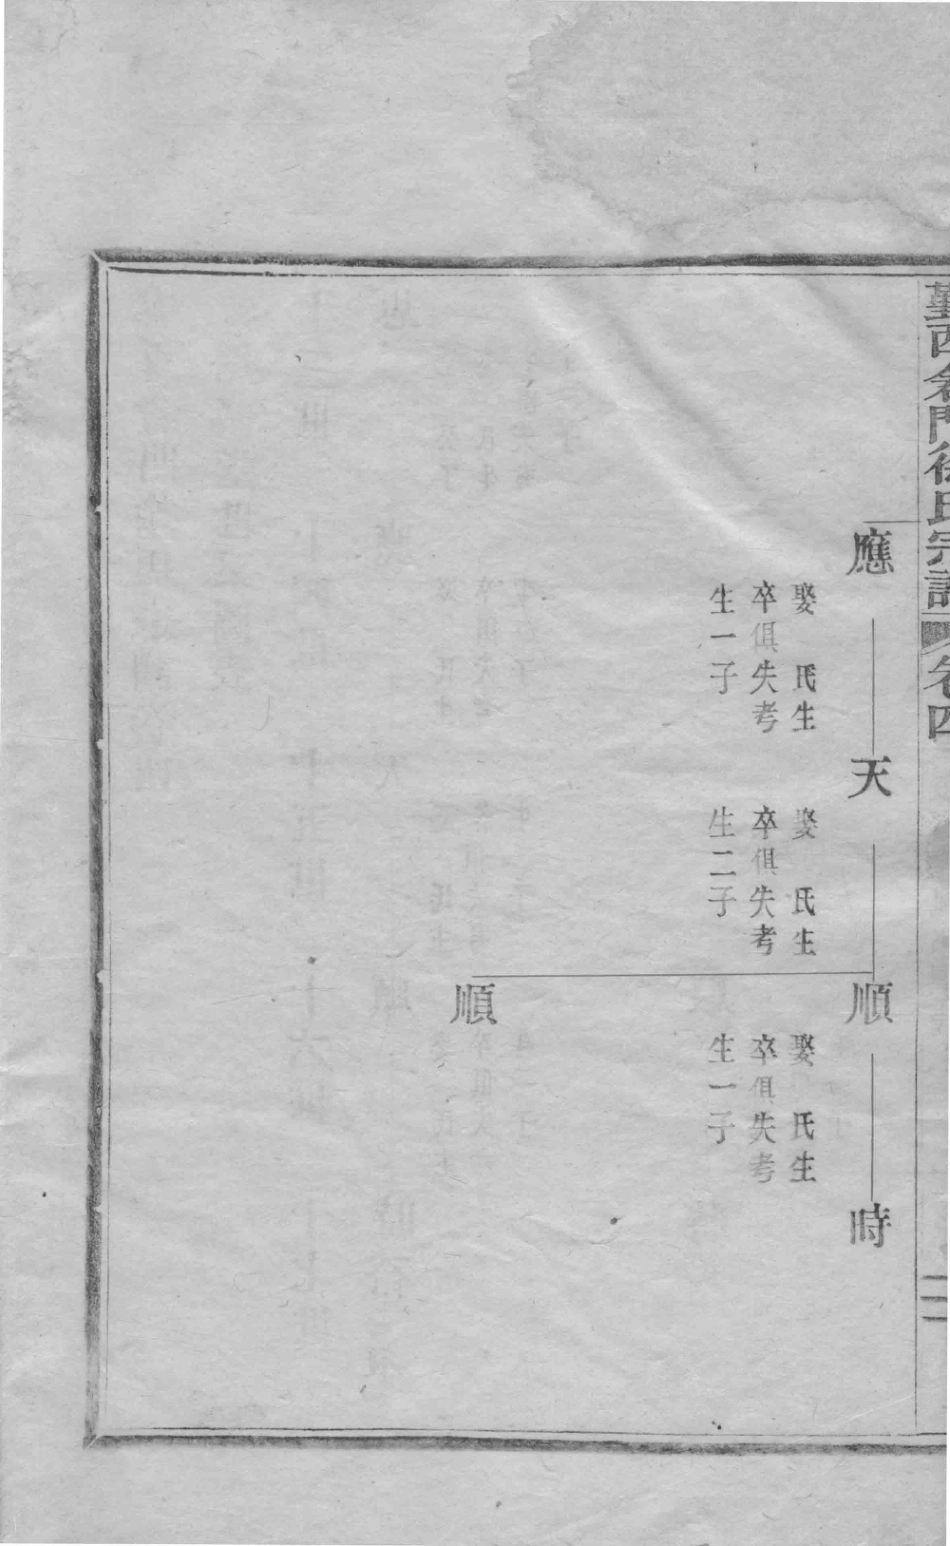 西倉門徐氏宗譜 卷四
應
娶 氏生
卒俱失考
生一子
天
娶 氏生
卒俱失考
生二子
順
娶 氏生
卒俱失考
生一子
時
順